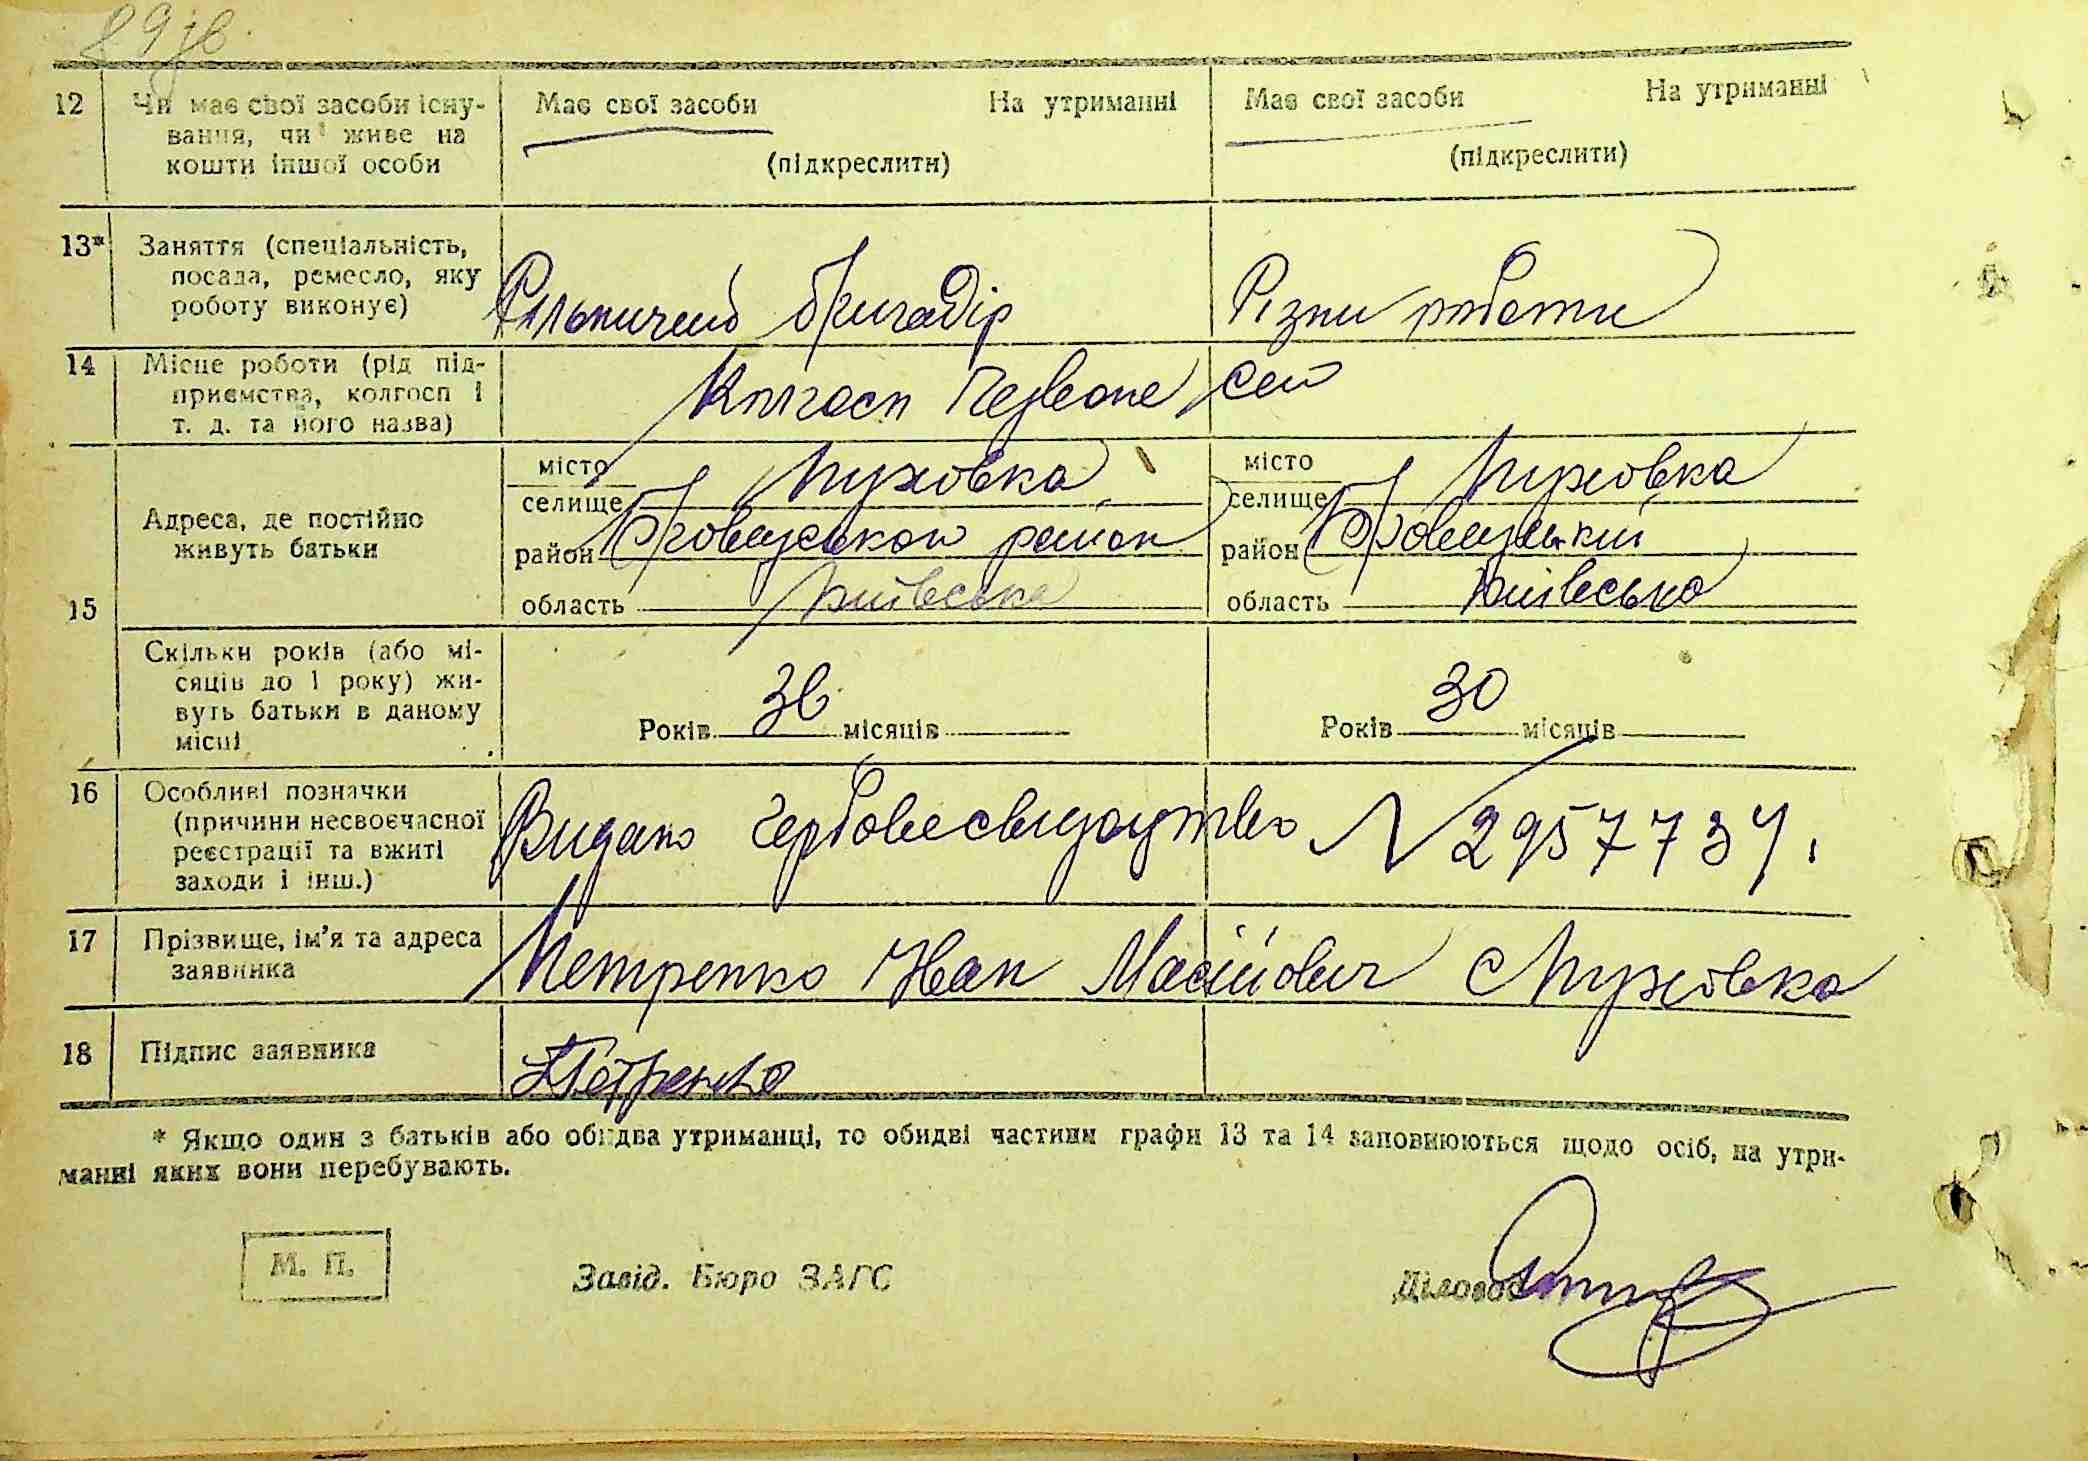 89 зв.
12 Чи має свої засоби існу- Має свої засоби На утриманні Має свої засоби На утриманні
вання, чи живе на
кошти іншої особи (підкреслити) (підкреслити)
13* Заняття (спеціальність,
посада, ремесло, яку
роботу виконує) Рільничий бригадір Різни роботи
14 Місце роботи (рід під-
приємства, колгосп і
т. д. та його назва) Колгосп Червоне село
15 Адреса, де постійно
живуть батьки
місто Пуховка місто Пуховка
селище селище
район Броварського район район Броварський
область Київська область Київська
Скільки років (або мі-
сяців до 1 року) жи-
вуть батьки в даному
місці Років 36 місяців Років 30 місяців
16 Особливі позначки
(причини несвоєчасної
реєстрації та вжиті
заходи і інш.) Видано гербове свидоцтво N 2957734.
17 Прізвище, ім'я та адреса
заявника Петренко Іван с Пуховка
18 Підпис заявника Петренко
* Якщо один з батьків або обидва утриманці, то обидві частини графи 13 та 14 заповнюються щодо осіб, на утри-
манні яких вони перебувають.
М. П. Завід. Бюро ЗАГС Діловод